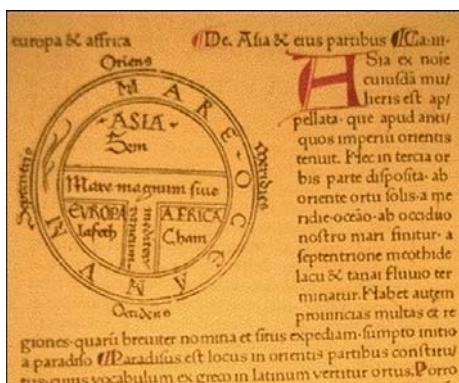 europa & affrica
De. Asia & eius partibus Ca·iii·
Oriens
MARE·OCCEANUM
·ASIA·
Sem
Mare magnum siue
mediterraneum
EVROPA
Iafeth
AFRICA
Cham
Septentrio
Meridies
Occidens
ASia ex noie
cuiusdā mu/
lieris est ap/
pellata· que apud anti/
quos imperiū orientis
tenuit. Hec in tercia or
bis parte disposita· ab
oriente ortu solis· a me
ridie· oceāo· ab occiduo
nostro mari finitur· a
septentrione meothide
lacu & tanai fluuio ter
minatur. Habet autem
prouincias multas et re
giones· quarū breuiter nomina et situs expediam· sumpto initio
a paradiso Paradisus est locus in orientis partibus constitu/
tus· cuius vocabulum ex greco in latinum vertitur ortus. Porro